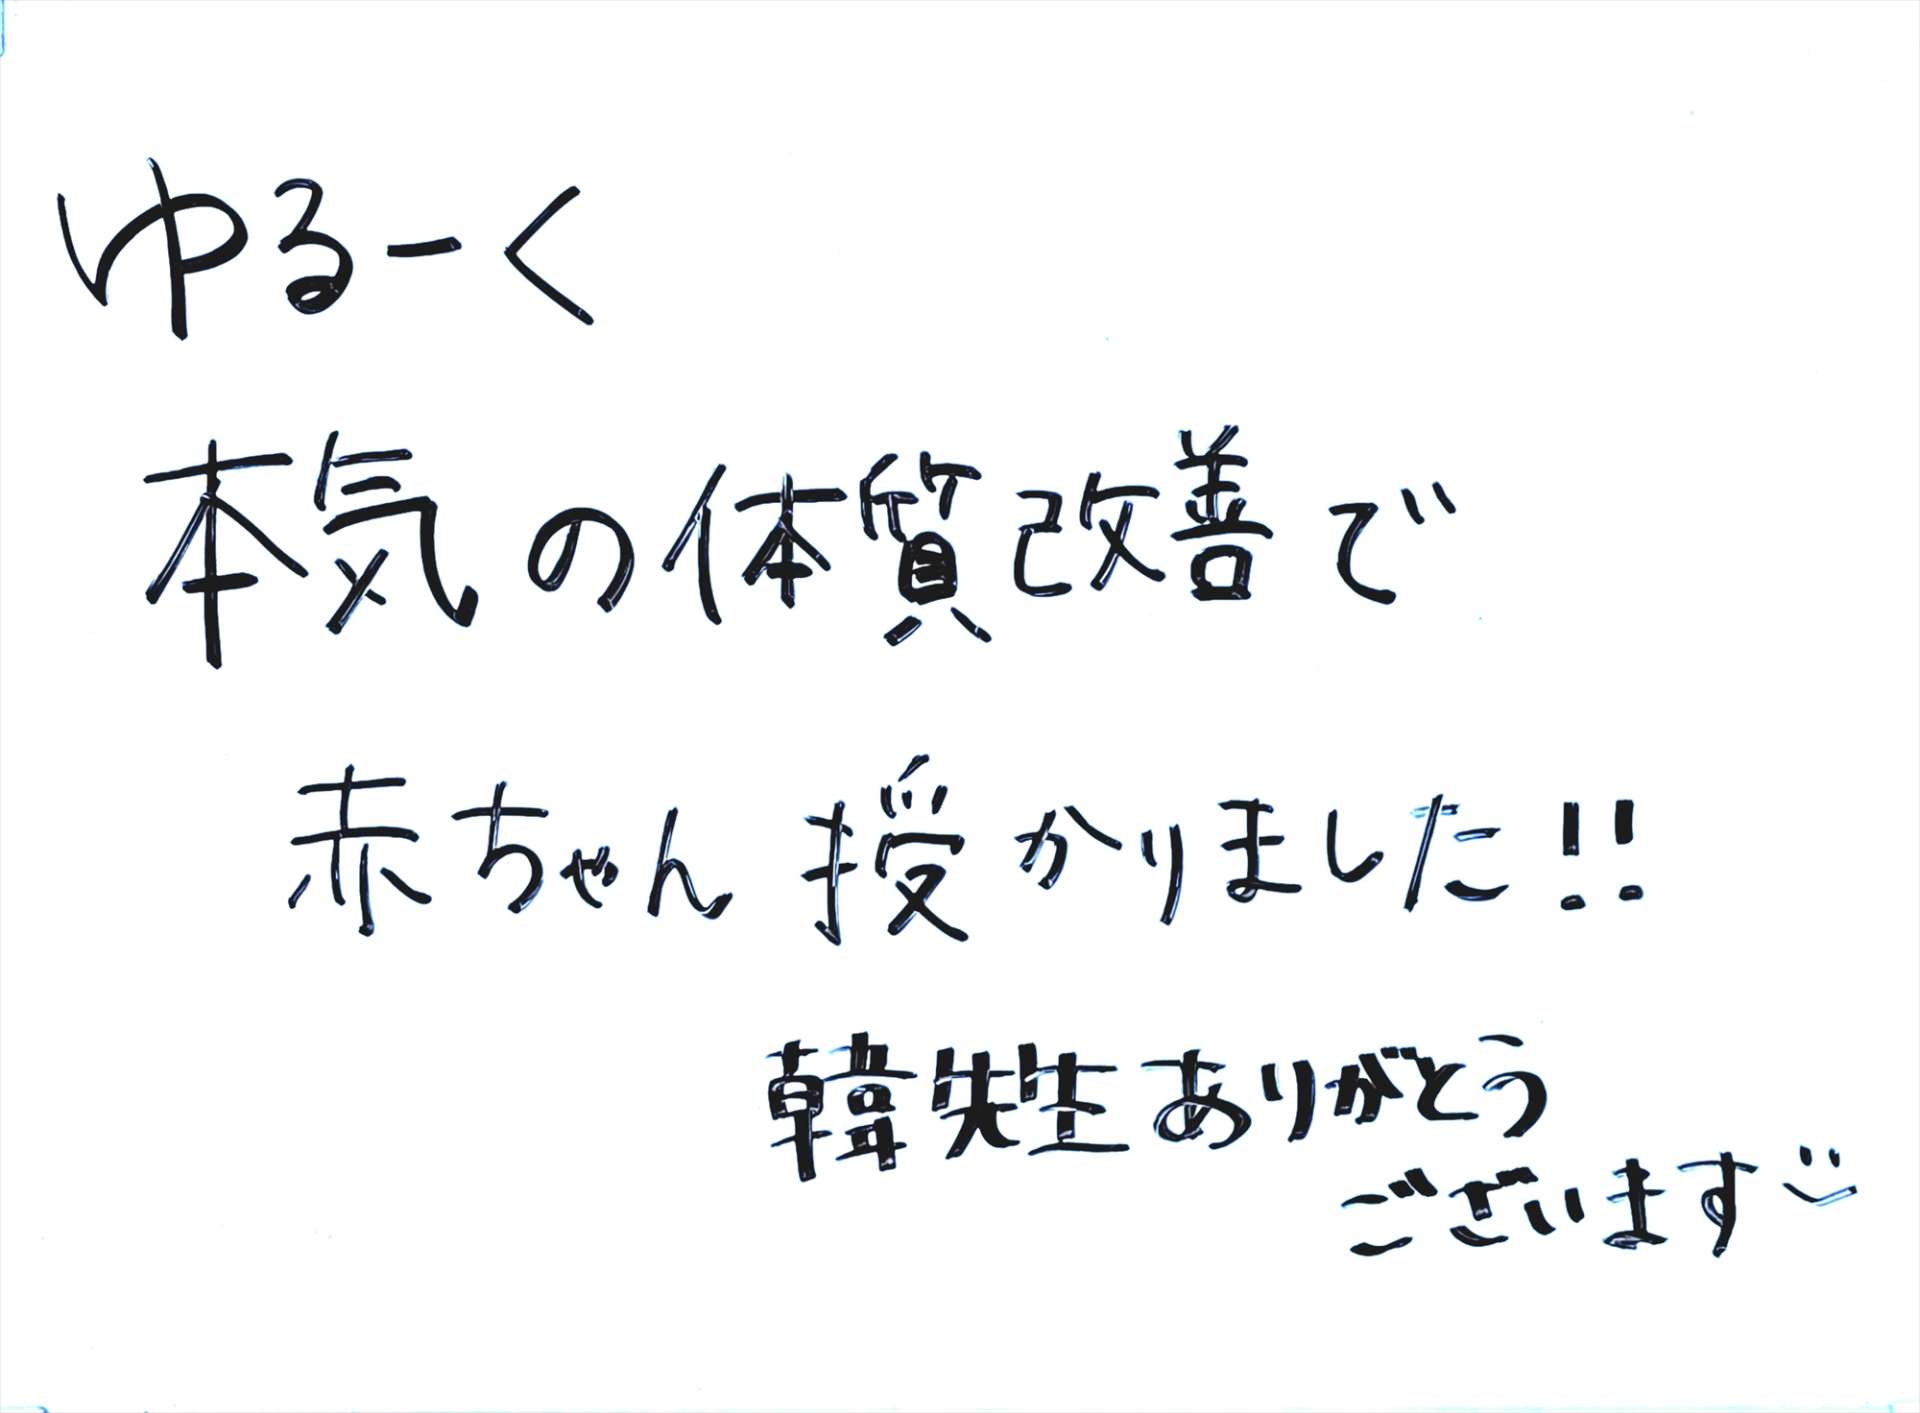 ゆるーく
本気の体質改善で
赤ちゃん授かりました!!
韓先生ありがとう
ございます